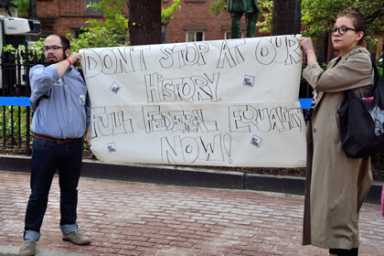 DON'T STOP AT OUR
HISTORY
FULL FEDERAL EQUALITY
NOW!